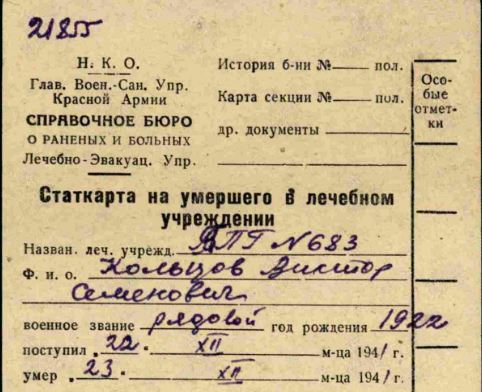 21855
Н. К. О.
Глав. Воен.-Сан. Упр.
Красной Армии
СПРАВОЧНОЕ БЮРО
О РАНЕНЫХ И БОЛЬНЫХ
Лечебно-Эвакуац. Упр.
История б-ни № пол.
Карта секции № пол.
др. документы
Осо-
бые
отмет-
ки
Статкарта на умершего в лечебном
учреждении
Назван. леч. учрежд. ППГ N 683
Ф. и о. Кольцов Виктор
Семенович
военное звание рядовой год рождения 1922
поступил 22. XII м-ца 1941 г.
умер 23. XII м-ца 1941 г.